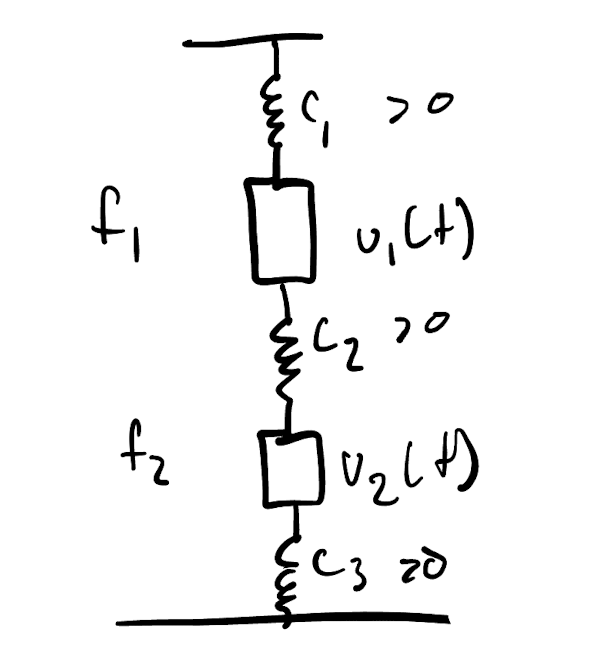 c₁ > 0
f₁ u₁(t)
c₂ > 0
f₂ u₂(t)
c₃ ≥ 0